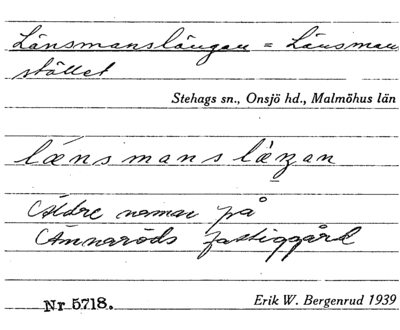 Länsmanslängan = Länsman
stället
Stehags sn., Onsjö hd., Malmöhus län
lænsmanslæŋan
Äldre namn på
Annaröds fastiggård
Nr 5718.
Erik W. Bergenrud 1939